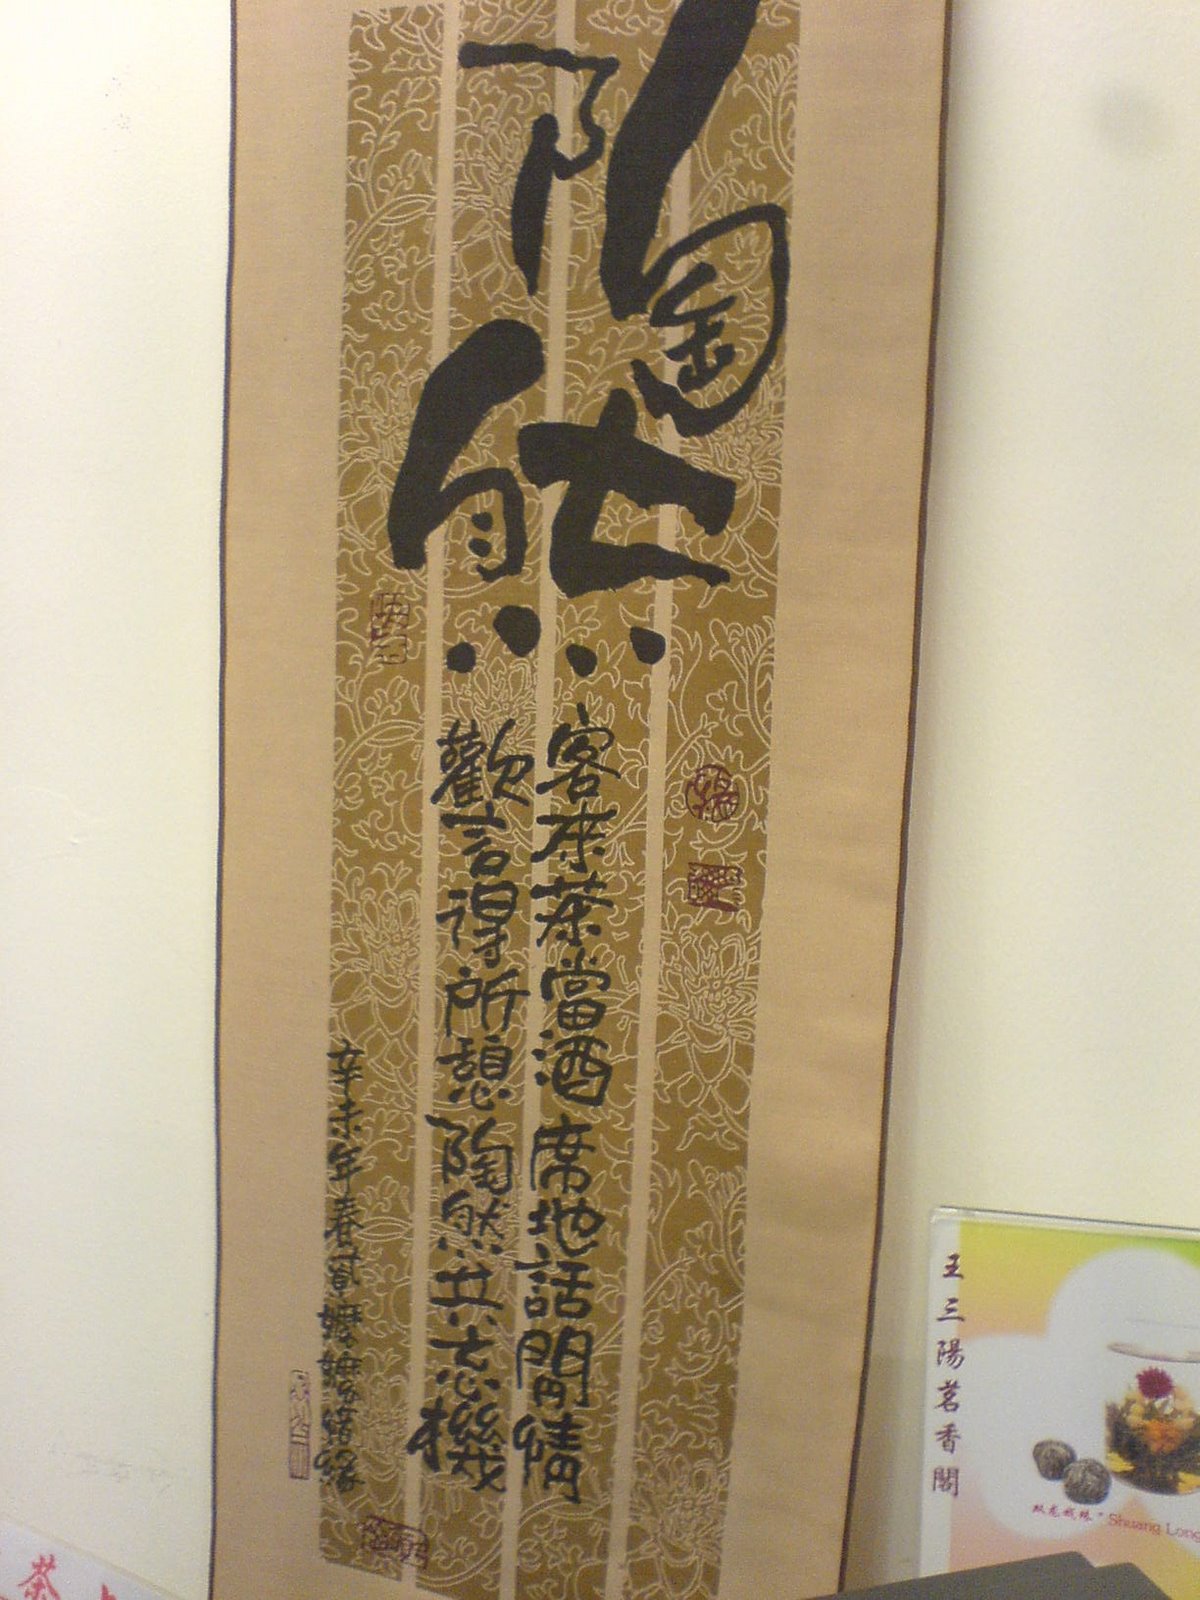 陶然
客來茶當酒席地話閒情
歡言得所憩陶然共忘機
辛未年春
王三陽茗香閣
双龙戏珠
Shuang Long
茶